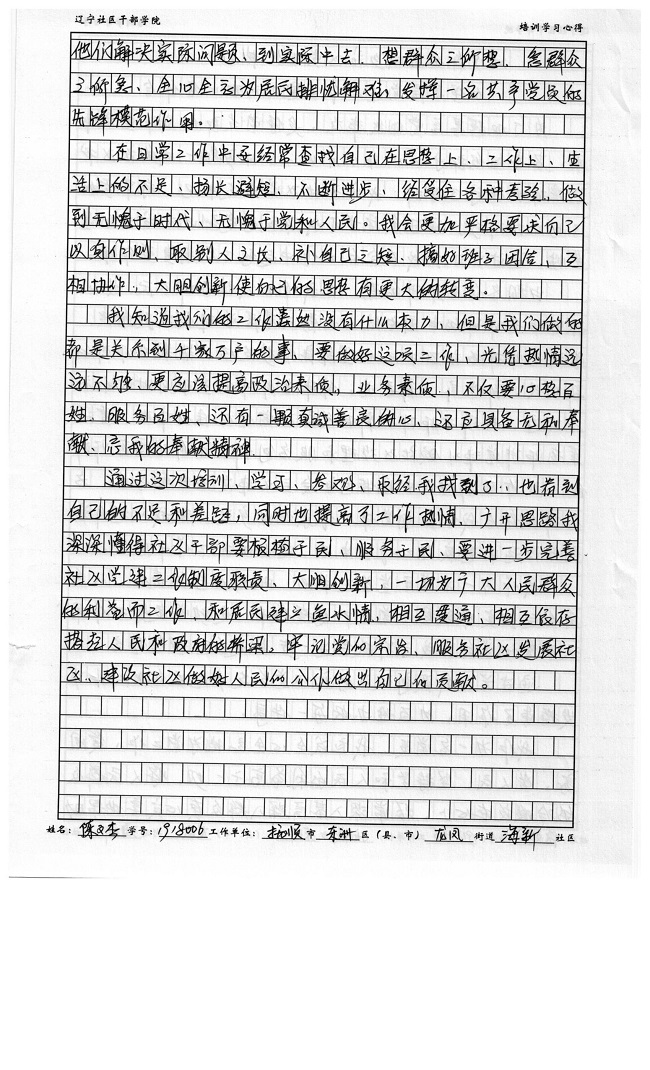 辽宁社区干部学院
培训学习心得
他们解决实际问题、到实际中去、想群众之所想、急群众
之所急、全心全意为居民排忧解难、发挥一名共产党员的
先锋模范作用。
在日常工作中要经常查找自己在思想上、工作上、生
活上的不足、扬长避短、不断进步、经受住各种考验、做
到无愧于时代、无愧于党和人民。我会更加严格要求自己
以身作则、取别人之长、补自己之短、搞好班子团结、互
相协作、大胆创新使自己的思想有更大的转变。
我知道我们的工作虽然没有什么本力、但是我们做的
都是关系到千家万户的事、要做好这项工作、光凭热情远
远不够、更应该提高政治素质、业务素质、不仅要心想百
姓、服务百姓、还有一颗真诚善良的心、还应具备无私奉
献、忘我的奉献精神
通过这次培训、学习、参观、取经我找到了、也看到
自己的不足和差距，同时也提高了工作热情、广开思路我
深深懂得社区干部要根植于民、服务于民、要进一步完善
社区党建工作制度职责、大胆创新、一切为广大人民群众
的利益而工作、和居民建立鱼水情、相互沟通、相互依存
搭起人民和政府的桥梁。牢记党的宗旨、服务社区发展社
区、建设社区做好人民的公仆做出自己的贡献。
姓名：陈文杰 学号：1918006 工作单位：抚顺 市 东洲 区（县、市） 龙凤 街道 海新 社区